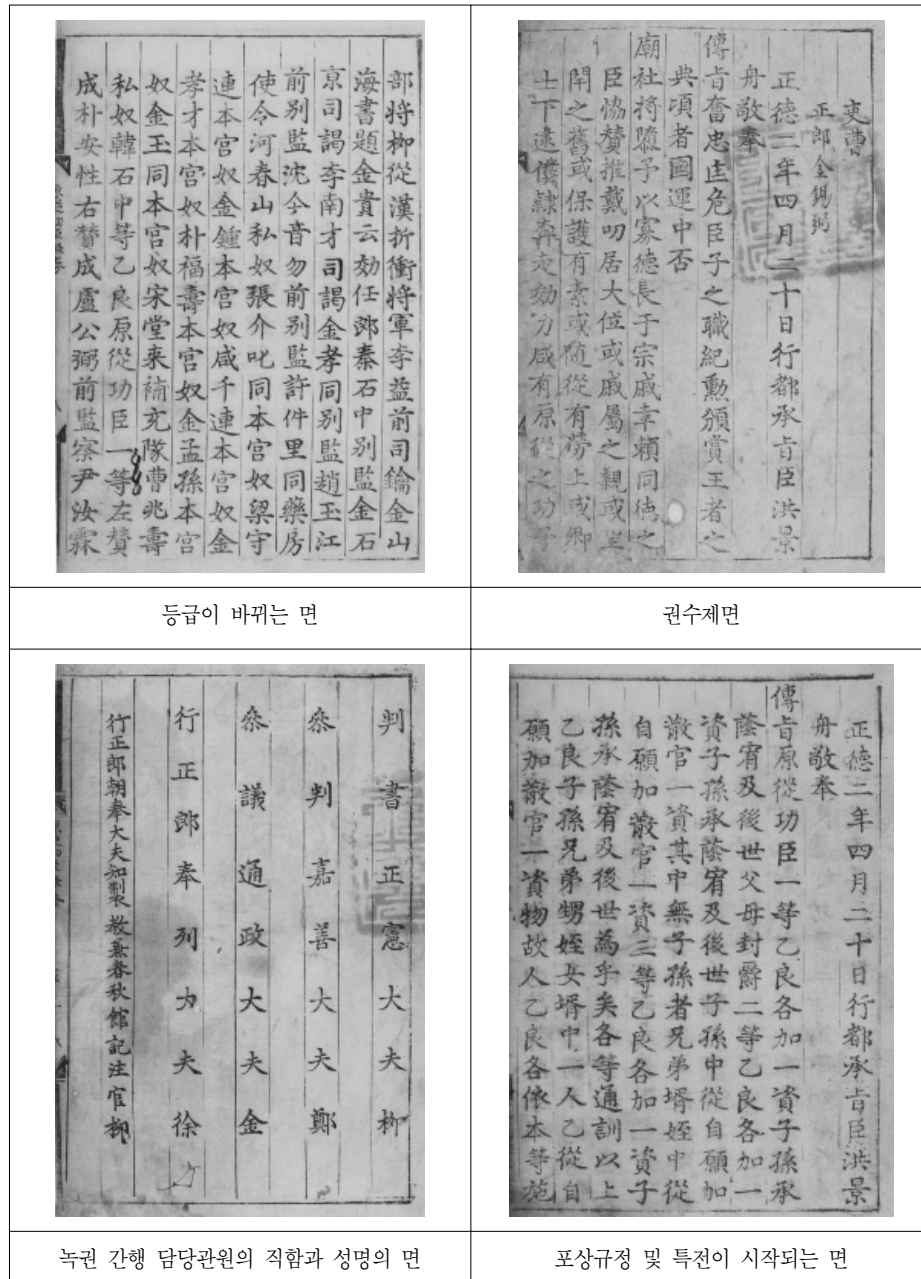 部將柳從漢折衝將軍李益前司鑰金山
海書題金貴云効任郎秦石中別監金石
京司謁李南才司謁金孝同別監趙玉江
前別監沈今音勿前別監許件里同藥房
使令河春山私奴張介叱同本宮奴梁守
連本宮奴金鍾本宮奴咸千連本宮奴金
孝才本宮奴朴福壽本宮奴金孟孫本宮
奴金玉同本宮奴宋堂来補充隊曹兆壽
私奴韓石中等乙良原從功臣一等左賛
成朴安性右賛成盧公弼前監察尹汝霖
등급이 바뀌는 면
吏曹
正郎金錫弼
正德二年四月二十日行都承旨臣洪景
舟敬奉
傳旨奮忠匡危臣子之職紀勳頒賞王者之
典項者國運中否
廟社將隳予以寡德長于宗戚幸賴同德之
臣協賛推戴叨居大位或戚屬之親或里
閈之舊或保護有素或隨從有勞上或卿
士下逮僕隷奔走効力咸有原從之功予
권수제면
判書正憲大夫柳
叅判嘉善大夫鄭
叅議通政大夫金
行正郎奉列大夫徐
行正郎朝奉大夫知製教兼春秋館記注官柳
녹권 간행 담당관원의 직함과 성명의 면
正德二年四月二十日行都承旨臣洪景
舟敬奉
傳旨原從功臣一等乙良各加一資子孫承
蔭宥及後世父母封爵二等乙良各加一
資子孫承蔭宥及後世子孫中從自願加
散官一資其中無子孫者兄弟壻姪中從
自願加散官一資三等乙良各加一資子
孫承蔭宥及後世爲乎矣各等通訓以上
乙良子孫兄弟甥姪女壻中一人乙從自
願加散官一資物故人乙良各依本等施
포상규정 및 특전이 시작되는 면